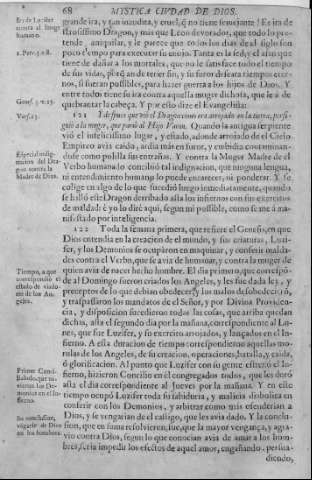 68 MYSTICA CIUDAD DE DIOS.
Ira de Luzifer contra el linage humano.
1. Petr. 5. v. 8.
Genes. 3. v. 15.
Vers. 13.
Especial indignacion del Dragon contra la Madre de Dios.
Tiempo, a que correspondiò el estado de viadores de los Angeles.
Primer Conciliabulo, que tuvieron los Demonios en el infierno.
Su conclusion, vengarse de Dios en los hombres.
grande ira, y tan inaudita, y cruel, q̃ no tiene semejante! Es ira de
este osadissimo Dragon, y mas que Leon devorador, que todo lo pretende
aniquilar, y le parece que todos los dias de el siglo son
poco tiempo para executar su enojo. Tanta es la sed, y el ansia que
tiene de dañar a los mortales, que no le satisface todo el tiempo
de sus vidas, porq̃ an de tener fin, y su furor deseara tiempos eternos,
si fueran possibles, para hazer guerra a los hijos de Dios. Y
entre todos tiene su ira contra aquella muger dichosa, que le á de
quebrantar la cabeça. Y por esso dize el Evangelista:
121 Y despues que viò el Dragon como era arrojado en la tierra, persiguiò
a la muger, que pariò al Hijo Varon. Quando la antigua serpiente
viò el infelicissimo lugar, y estado, adonde arrojado de el Cielo
Empireo avia caido, ardia mas en furor, y embidia contaminandose
como polilla sus entrañas. Y contra la Muger Madre de el
Verbo humanado concibiò tal indignacion, que ninguna lengua,
ni entendimiento humano lo puede encarecer, ni ponderar. Y se
colige en algo de lo que sucediò luego inmediatamente, quando
se hallò este Dragon derribado asta los infiernos con sus exercitos
de maldad: è yo lo diré aqui, segun mi possible, como se me á manifestado
por inteligencia.
122 Toda la semana primera, que refiere el Genesis, en que
Dios entendia en la creacion de el mundo, y sus criaturas, Luzifer,
y los Demonios se ocuparon en maquinar, y conferir maldades
contra el Verbo, que se avia de humanar, y contra la muger de
quien avia de nacer hecho hombre. El dia primero, que corresponde
al Domingo fueron criados los Angeles, y les fue dada ley, y
preceptos de lo que debian obedecer; y los malos desobedecieró,
y traspassaron los mandatos de el Señor, y por Divina Providencia,
y disposicion sucedieron todas las cosas, que arriba quedan
dichas, asta el segundo dia por la mañana, correspondiente al Lunes,
que fue Luzifer, y su exercito arrojados, y lançados en el Infierno.
A esta duracion de tiempo correspondieron aquellas morulas
de los Angeles, de su creacion, operaciones, batalla, y caida,
ò glorificacion. Al punto que Luzifer con su gente estrenò el Infierno,
hizieron Concilio en él congregados todos, que les durò
asta el dia correspondiente al Jueves por la mañana. Y en este
tiempo ocupò Luzifer toda su sabiduria, y malicia diabolica en
conferir con los Demonios, y arbitrar como mas ofenderian a
Dios, y se vengarian de el castigo, que les avia dado. Y la conclusion,
que en suma resolvieron, fue, que la mayor vengança, y agravio
contra Dios, segun lo que conocian avia de amar a los hombres,
seria impedir los efectos de aquel amor, engañando, persuadiendo,